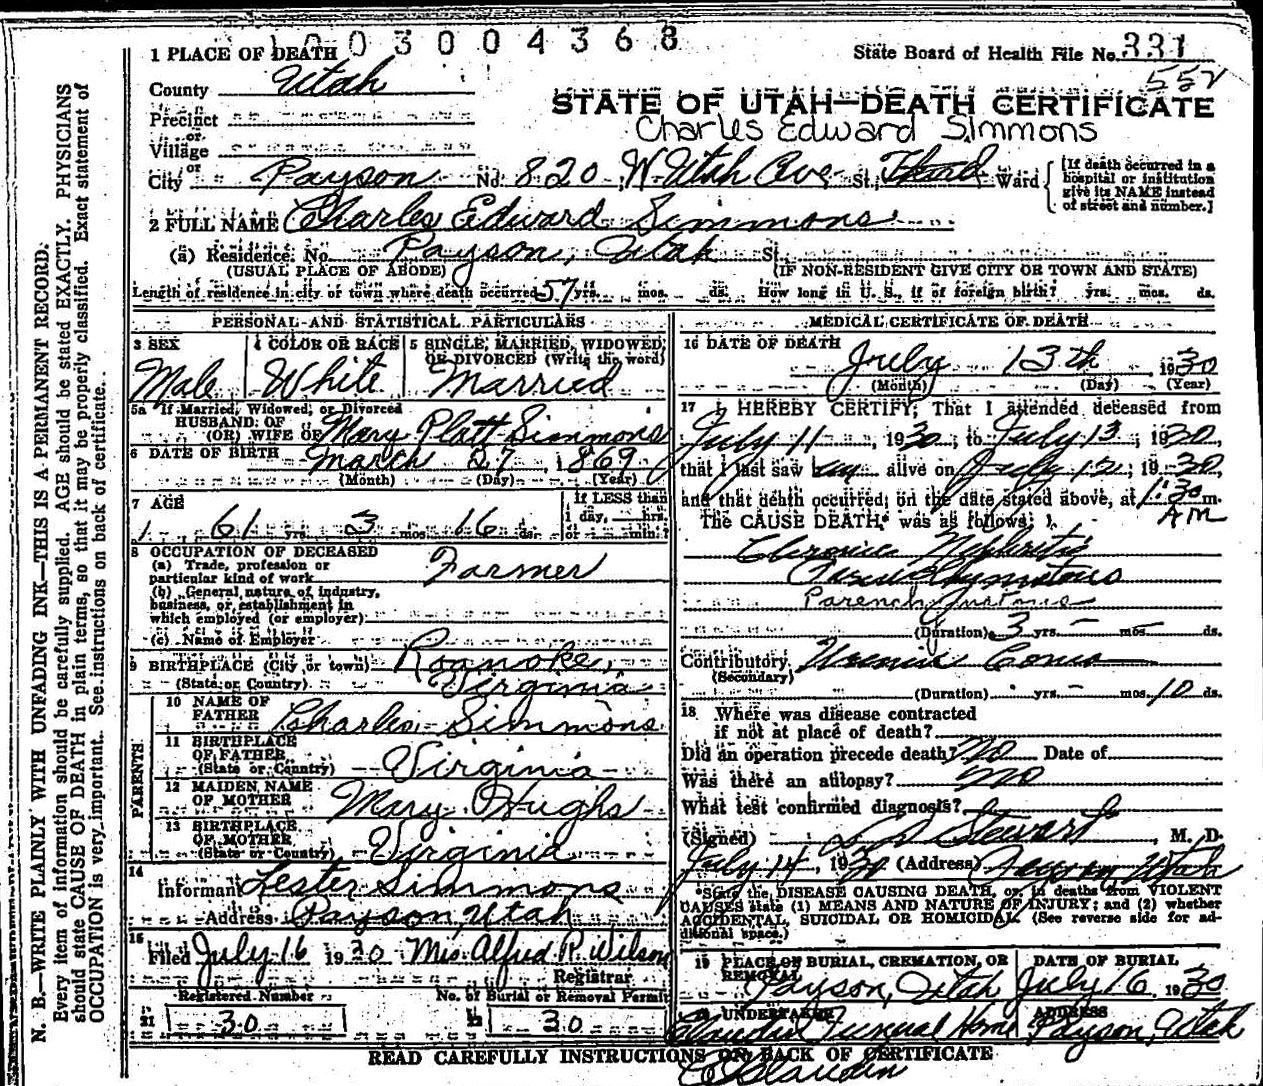 1003004368
1 PLACE OF DEATH
State Board of Health File No. 331
557
County Utah
STATE OF UTAH—DEATH CERTIFICATE
Precinct
Charles Edward Simmons
or
Village
or
City Payson No. 820 W. Utah Ave St.; Third Ward
[If death occurred in a hospital or institution give its NAME instead of street and number.]
2 FULL NAME Charles Edward Simmons
(a) Residence. No. Payson, Utah St.
(USUAL PLACE OF ABODE) (IF NON-RESIDENT GIVE CITY OR TOWN AND STATE)
Length of residence in city or town where death occurred 57 yrs. mos. ds. How long in U. S., if of foreign birth? yrs. mos. ds.
PERSONAL AND STATISTICAL PARTICULARS
3 SEX
Male
4 COLOR OR RACE
White
5 SINGLE, MARRIED, WIDOWED, OR DIVORCED (Write the word)
Married
5a If Married, Widowed, or Divorced
HUSBAND OF
(OR) WIFE OF Mary Platt Simmons
6 DATE OF BIRTH March 27, 1869
(Month) (Day) (Year)
7 AGE
61 yrs. 3 mos. 16 ds.
If LESS than
1 day, hrs.
or min.?
8 OCCUPATION OF DECEASED
(a) Trade, profession or
particular kind of work Farmer
(b) General nature of industry,
business, or establishment in
which employed (or employer)
(c) Name of Employer
9 BIRTHPLACE (City or town) Roanoke,
(State or Country) Virginia
PARENTS
10 NAME OF
FATHER Charles Simmons
11 BIRTHPLACE
OF FATHER
(State or Country) Virginia
12 MAIDEN NAME
OF MOTHER Mary Hughs
13 BIRTHPLACE
OF MOTHER
(State or Country) Virginia
14
Informant Lester Simmons
Address Payson, Utah
15
Filed July 16 1930 Mrs. Alfred R. Wilson
Registrar
Registered Number
21 30
No. of Burial or Removal Permit
22 30
MEDICAL CERTIFICATE OF DEATH
16 DATE OF DEATH
July 13th, 1930
(Month) (Day) (Year)
17 I HEREBY CERTIFY, That I attended deceased from
July 11, 1930, to July 13, 1930,
that I last saw alive on July 12, 1930,
and that death occurred, on the date stated above, at 1:30 m.
AM
The CAUSE DEATH* was as follows:
Chronic Nephritis
Parenchymatous
(Duration) 3 yrs. mos. ds.
Contributory Uremic Coma
(Secondary)
(Duration) yrs. mos. 10 ds.
18 Where was disease contracted
if not at place of death?
Did an operation precede death? No Date of
Was there an autopsy? No
What test confirmed diagnosis?
(Signed) Stewart, M. D.
July 14, 1930 (Address) Payson Utah
*State the DISEASE CAUSING DEATH, or, in deaths from VIOLENT
CAUSES state (1) MEANS AND NATURE OF INJURY; and (2) whether
ACCIDENTAL, SUICIDAL OR HOMICIDAL. (See reverse side for ad-
ditional space.)
19 PLACE OF BURIAL, CREMATION, OR REMOVAL
Payson, Utah
DATE OF BURIAL
July 16, 1930
UNDERTAKER
Claudin Funeral Home
ADDRESS
Payson, Utah
READ CAREFULLY INSTRUCTIONS ON BACK OF CERTIFICATE
Claudin
N. B.—WRITE PLAINLY WITH UNFADING INK—THIS IS A PERMANENT RECORD.
Every item of information should be carefully supplied. AGE should be stated EXACTLY. PHYSICIANS
should state CAUSE OF DEATH in plain terms, so that it may be properly classified. Exact statement of
OCCUPATION is very important. See instructions on back of certificate.